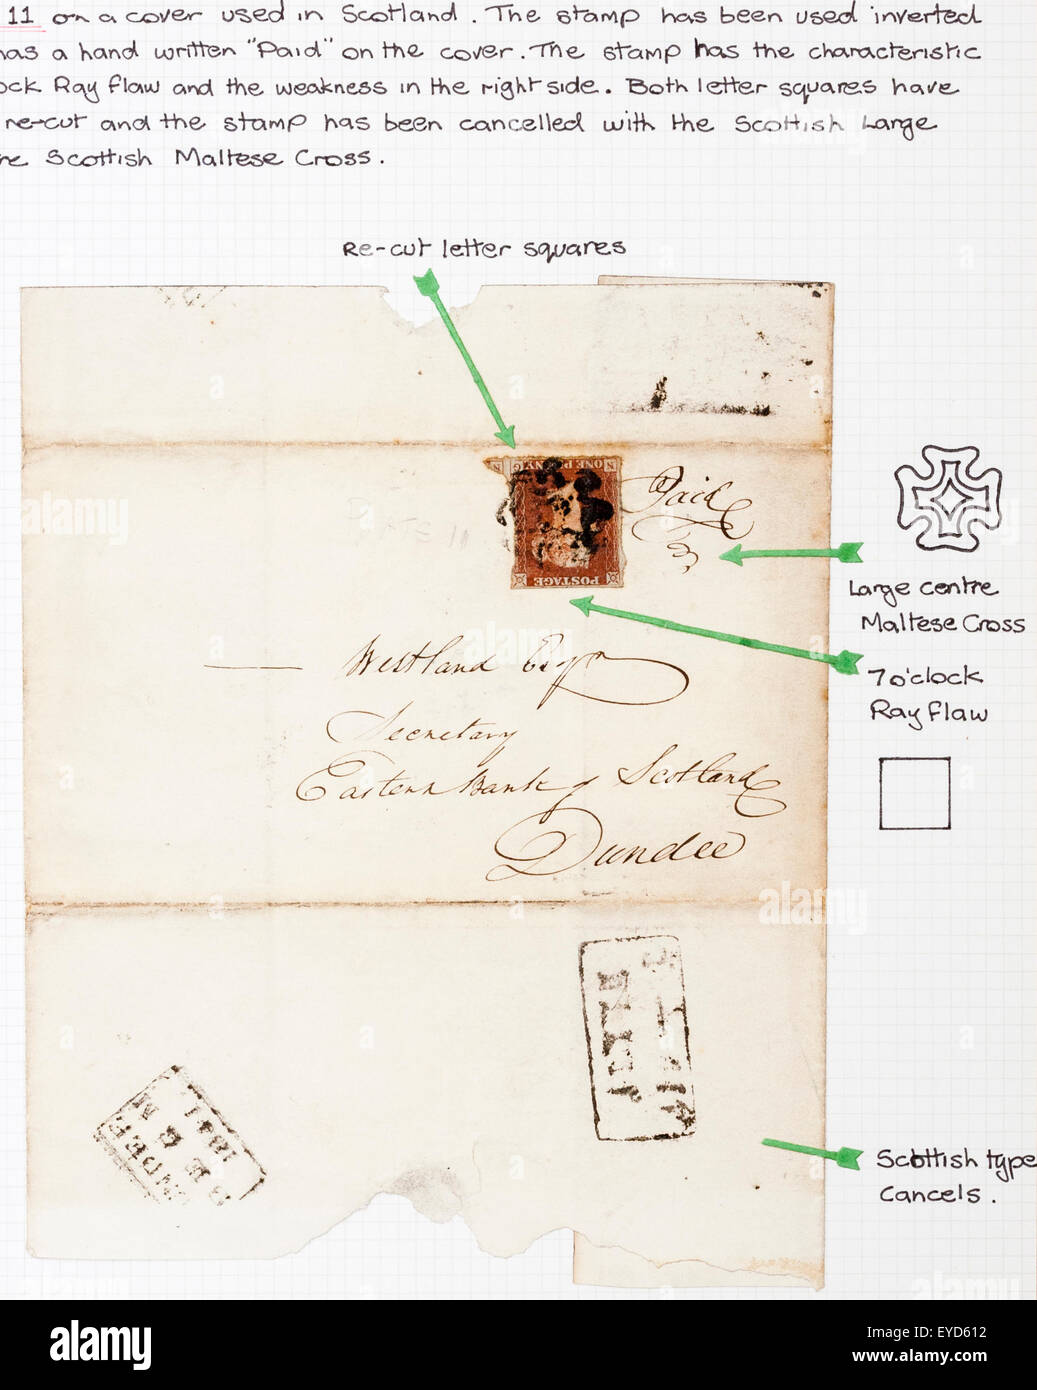 11 on a cover used in Scotland. The stamp has been used inverted
has a hand written "Paid" on the cover. The stamp has the characteristic
ock Ray flaw and the weakness in the right side. Both letter squares have
re-cut and the stamp has been cancelled with the Scottish Large
re Scottish Maltese Cross.
Re-cut letter squares
N ONE PENNY G
Paid
POSTAGE
PLATE 11
Large centre
Maltese Cross
7 o'clock
Ray flaw
Westland Esqr
Secretary
Eastern Bank of Scotland
Dundee
1841
Scottish type
Cancels.
alamy
Image ID: EYD612
www.alamy.com